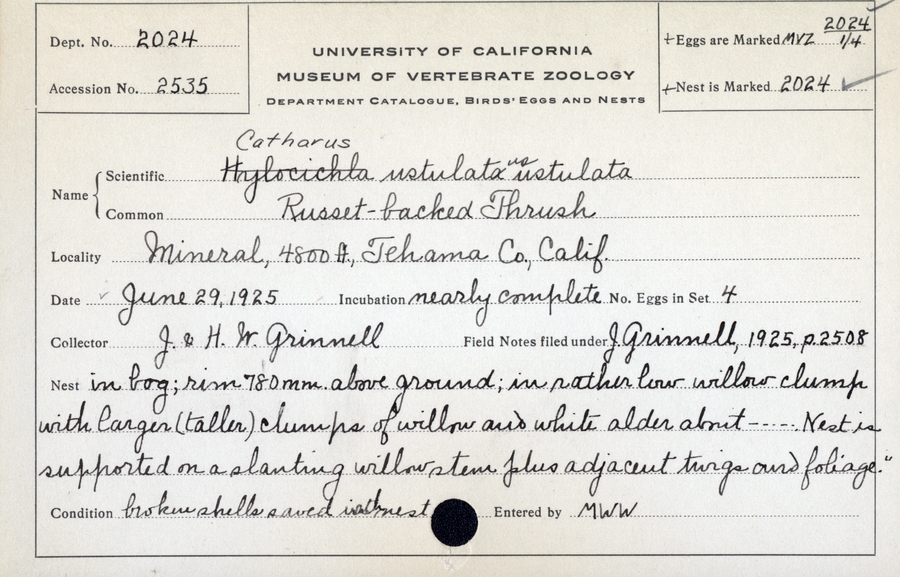 Dept. No. 2024
Accession No. 2535
UNIVERSITY OF CALIFORNIA
MUSEUM OF VERTEBRATE ZOOLOGY
DEPARTMENT CATALOGUE, BIRDS' EGGS AND NESTS
+Eggs are Marked MVZ 2024 1/4
+Nest is Marked 2024 ✓
Catharus
Name
Scientific Hylocichla ustulata us ustulata
Common Russet-backed Thrush
Locality Mineral, 4800 ft., Tehama Co., Calif.
Date ✓ June 29, 1925 Incubation nearly complete No. Eggs in Set 4
Collector J. & H. W. Grinnell Field Notes filed under J. Grinnell, 1925, p. 2508
Nest in bog; rim 780 mm. above ground; in rather low willow clump
with larger (taller) clumps of willow and white alder about -----. Nest is
supported on a slanting willow stem plus adjacent twigs and foliage."
Condition broken shells saved with nest Entered by MWW